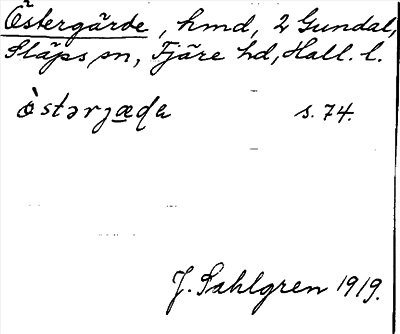 Östergärde, hmd, 2 Gundal,
Släps sn, Fjäre hd, Hall. l.
òstərjæḍa s. 74.
J. Sahlgren 1919.